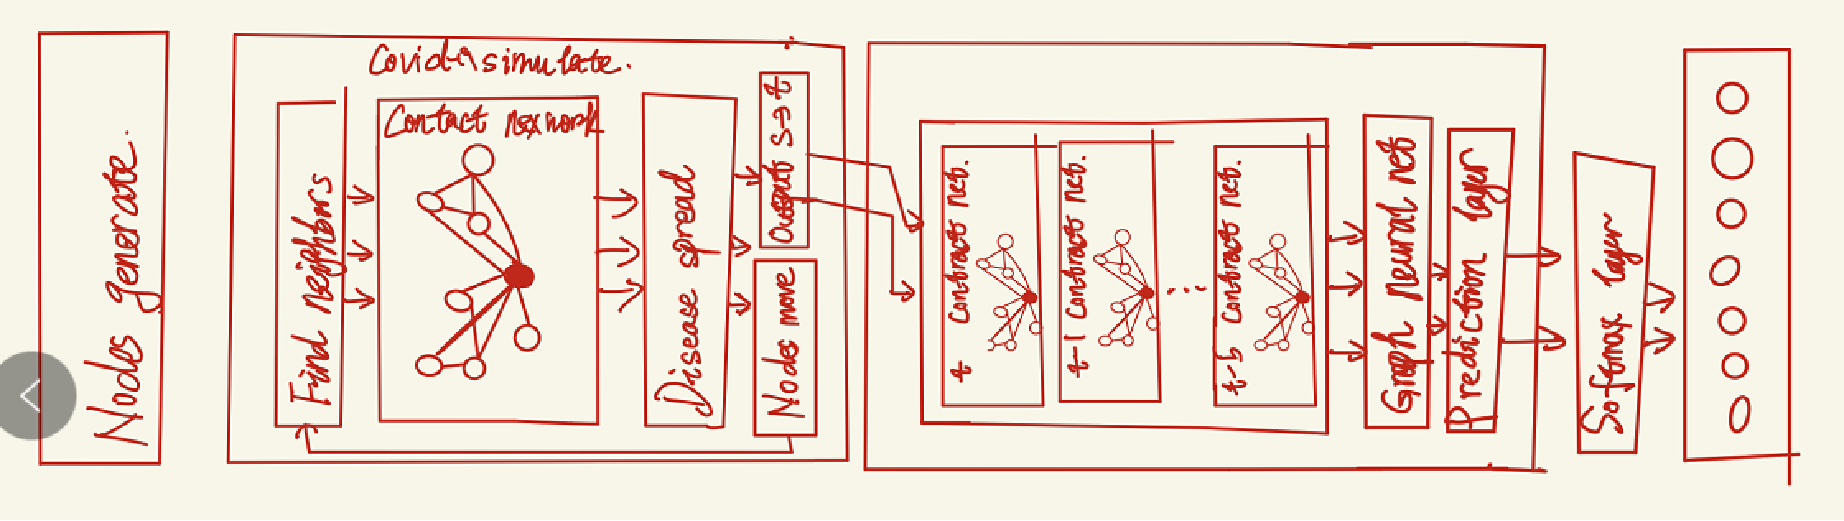 Nodes generate.
Covid simulate.
Find neighbors
Contact network
Disease spread
Output s→t
Nodes move
t contract net.
t-1 contract net.
...
t-5 contract net.
Graph neural net
Prediction layer
Softmax layer